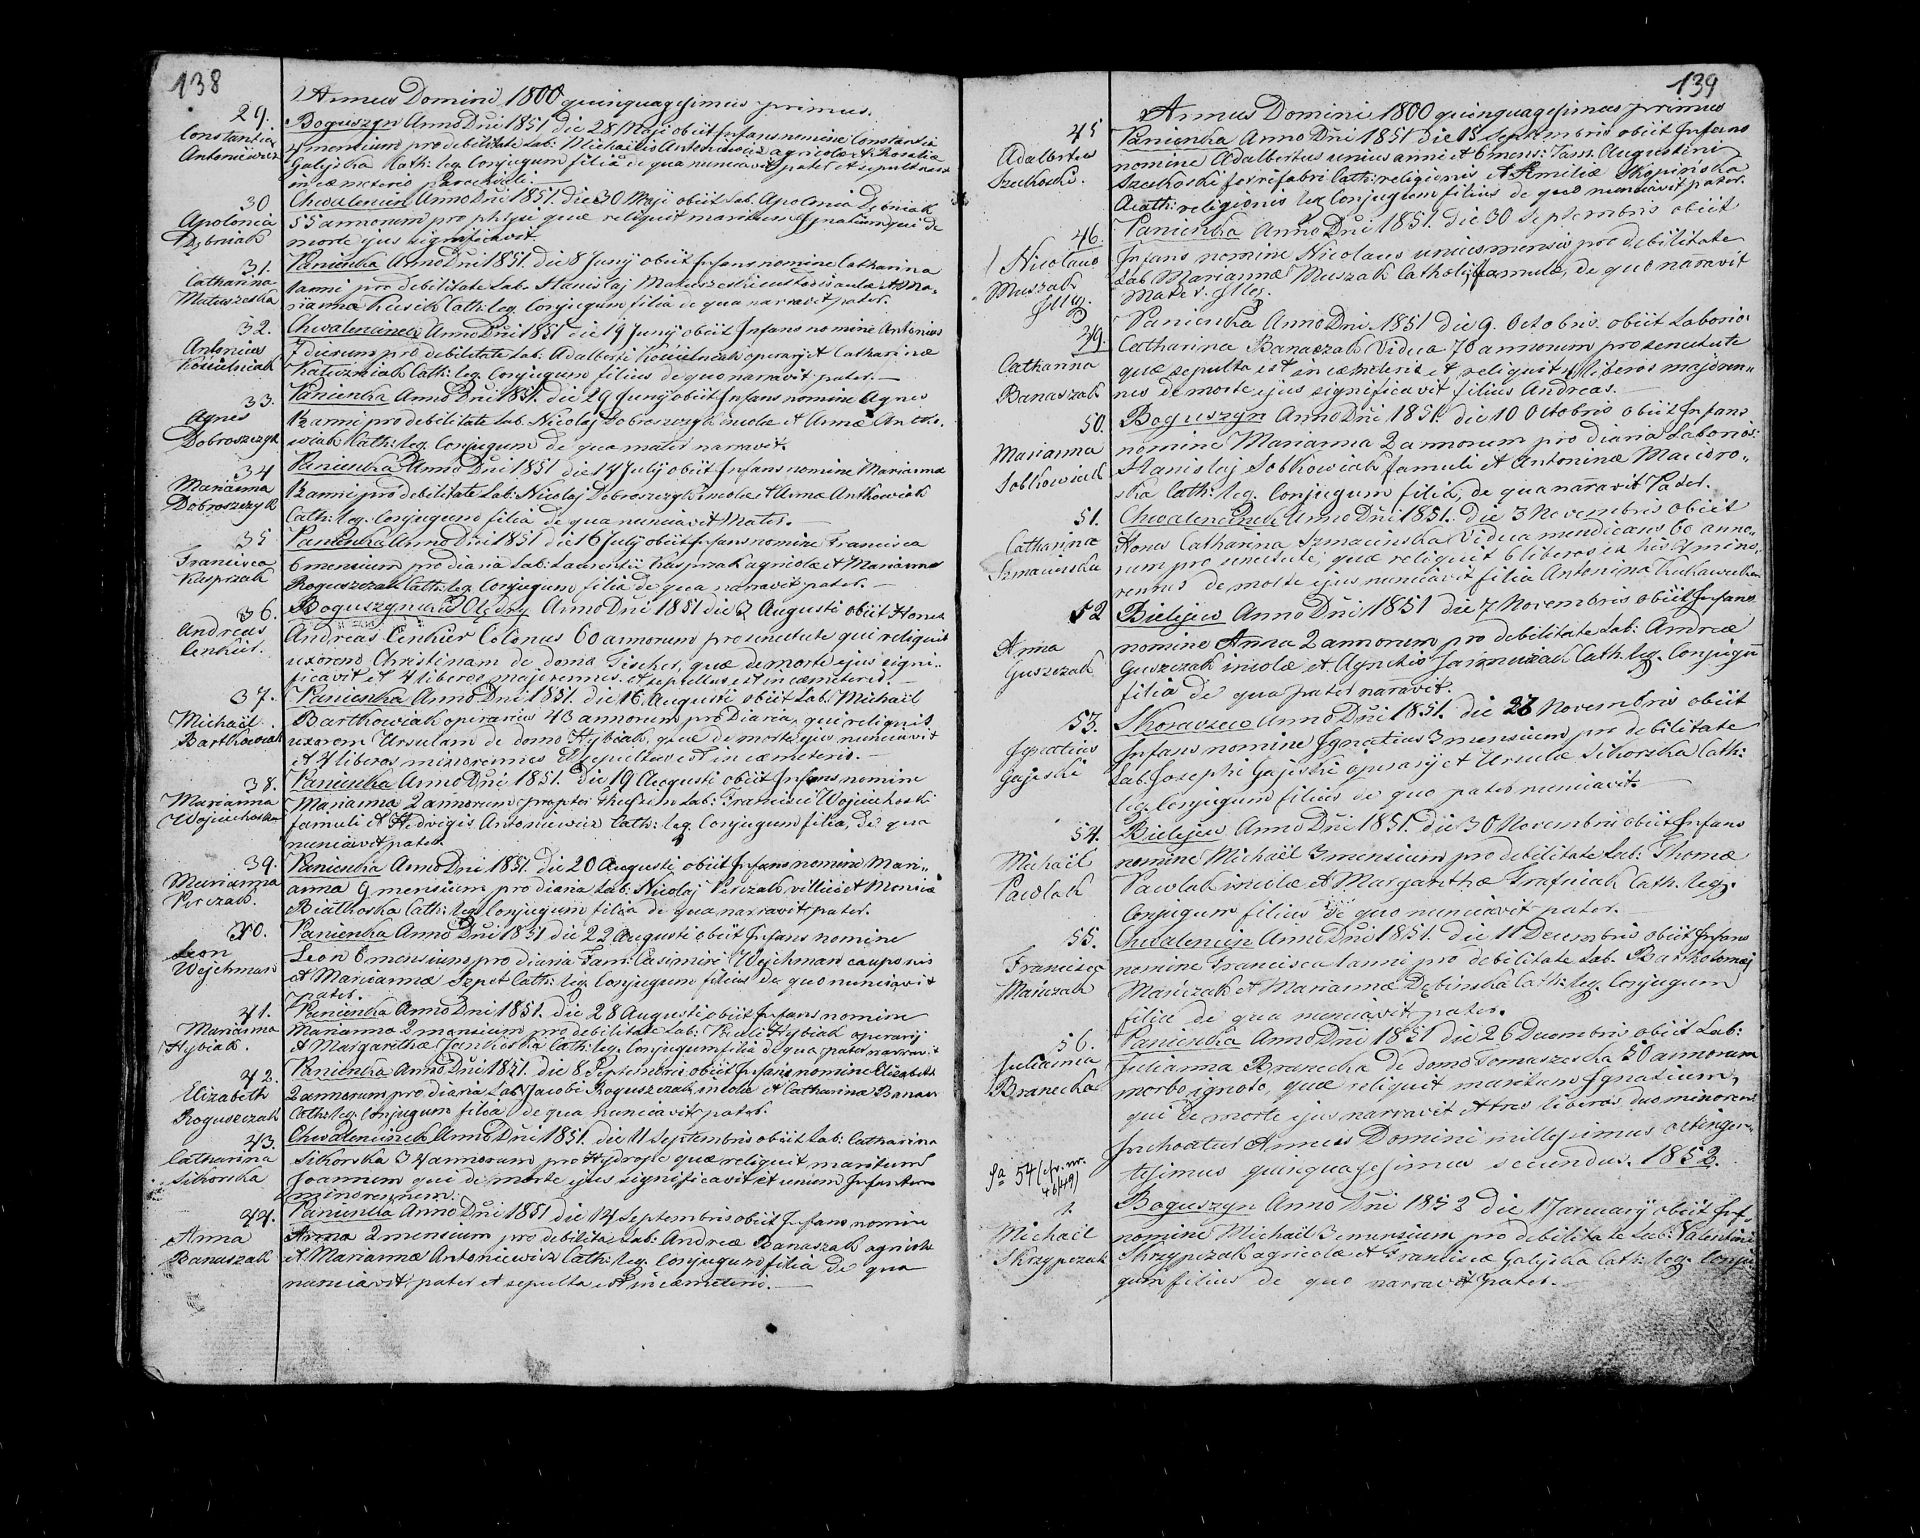 138
Annus Domini 1800 quinquagesimus primus.
29.
Constantia
Antoniewicz
Boguszyn Anno Dni 1851 die 28 Maji obiit Infans nomine Constantia
4 mensium pro debilitate Lab: Michaelis Antoniewicz agricolæ et Rosalia
Gajeska Cath: leg. Conjugum filia de qua nunciavit pater et sepulta est
in cæmeterio Parochiali.
30
Apolonia
Dębniak
Chwalencin Anno Dni 1851. die 30 Maji obiit Lab. Apolonia Dębniak
55 annorum pro phtysi quæ reliquit maritum Ignatium qui de
morte ejus significavit.
31.
Catharina
Matuszeska
Panienka Anno Dni 1851. die 8 Junij obiit Infans nomine Catharina
1 anni pro debilitate Lab. Stanislaj Matuszeski custodis aulæ et Ma„
riannæ Kusik Cath: leg. Conjugum filia de qua narravit pater.
32.
Antonius
Kościelniak
Chwalencinek Anno Dni 1851 die 19 Junij obiit Infans nomine Antonius
7 dierum pro debilitate Lab: Adalberti Kościelniak operarij et Catharinæ
Kaluzniak Cath: leg. Conjugum filius de quo narravit pater.
33.
Agnes
Dobroszczyk
Panienka Anno Dni 1851. die 29 Junij obiit Infans nomine Agnes
½ anni pro debilitate Lab. Nicolaj Dobroszczyk incolæ et Annæ Antko„
wiak Cath: leg. Conjugum de qua mater narravit.
34
Marianna
Dobroszczyk
Panienka Anno Dni 1851 die 14 Julij obiit Infans nomine Marianna
½ anni pro debilitate Lab: Nicolaj Dobroszczyk incolæ et Annæ Antkowiak
Cath: leg. Conjugum filia de qua nunciavit Mater.
35
Francisca
Kasprzak
Panienka Anno Dni 1851 die 16 Julij obiit Infans nomine Francisca
6 mensium pro diaria Lab: Laurentii Kasprzak agricolæ et Mariannæ
Roguszczak Cath: leg. Conjugum filia de qua narravit pater.
36.
Andreas
Cenkier.
Boguszyn Olędry Anno Dni 1851 die 2 Augusti obiit Hones
Andreas Cenkier Colonus 60 annorum pro senectute qui reliquit
uxorem Christinam de domo Fischer, quæ de morte ejus signi„
ficavit et 4 liberos majorennes. et sepultus est in cæmeterio.
37.
Michaël
Bartkowiak
Panienka Anno Dni 1851. die 16 Augusti obiit Lab. Michaël
Bartkowiak operarius 43 annorum pro Diaria, qui reliquit
uxorem Ursulam de domo Hybiak, quæ de morte ejus nunciavit
et 4 liberos minorennes Et sepultus est in cæmeterio.
38.
Marianna
Wojciechoska
Panienka Anno Dni 1851. die 19 Augusti obiit Infans nomine
Marianna 2 annorum propter Lab: Francisci Wojciechoski
famuli et Hedvigis Antoniewicz Cath: leg. Conjugum filia, de qua
nunciavit pater.
39.
Marianna
Pirczak.
Panienka Anno Dni 1851. die 20 Augusti obiit Infans nomine Mari„
anna 9 mensium pro diaria Lab: Nicolaj Pirczak villici et Monicæ
Białkoska Cath: leg. Conjugum filia de qua narravit pater.
40.
Leon
Wejchman
Panienka Anno Dni 1851 die 22 Augusti obiit Infans nomine
Leon 6 mensium pro diaria Fam: Casimiri Wejchman cauponis
et Mariannæ Szpet Cath: leg. Conjugum filius de quo nunciavit
pater.
41.
Marianna
Hybiak.
Panienka Anno Dni 1851. die 28 Augusti obiit Infans nomine
Marianna 2 mensium pro debilitate Lab: Pauli Hybiak operarij
et Margarethæ Jankoska Cath: leg. Conjugum filia de qua pater narravit
42.
Elizabeth
Roguszczak
Panienka Anno Dni 1851. die 8 Septembris obiit Infans nomine Elizabeth
2 annorum pro diaria Lab: Jacobi Roguszczak, incolæ et Catharinæ Banas
Cath: leg. Conjugum filia de qua nunciavit pater.
43.
Catharina
Sikorska
Chwalencinek Anno Dni 1851. die 11 Septembris obiit Lab: Catharina
Sikorska 34 annorum pro Hydrope quæ reliquit maritum
Joannem qui de morte ejus significavit et unum Infantem
minorennem.
44.
Anna
Banaszak
Panienka Anno Dni 1851 die 14 Septembris obiit Infans nomine
Anna 2 mensium pro debilita: Lab: Andreæ Banaszak agricolæ
et Mariannæ Antoniewicz Cath: leg. Conjugum filia de qua
nunciavit pater et sepulta est in cæmeterio.
139
Annus Domini 1800 quinquagesimus primus
45
Adalbertus
Szeckoski.
Panienka Anno Dni 1851 die 15 Septembris obiit Infans
nomine Adalbertus unius anni et 6 mens: Fam. Augustini
Szeckoski ferrifabri Cath: religionis et Æmiliæ Skopińska
Acath: religionis leg. Conjugum filius de quo nunciavit pater.
46.
Nicolaus
Muszak
Illeg.
Panienka Anno Dni 1851. die 30 Septembris obiit
Infans nomine Nicolaus unius mensis pro debilitate
Lab Mariannæ Muszak Catholi: famulæ, de quo narravit
Mater. Illeg.
49.
Catharina
Banaszak
Panienka Anno Dni 1851 die 9. Octobris. obiit Laborio:
Catharina Banaszak Vidua 70 annorum pro senectute
quæ sepulta est in cæmeterio et reliquit liberos majoren„
nes de morte ejus significavit filius Andreas.
50.
Marianna
Sobkowiak
Boguszyn Anno Dni 1851. die 10 Octobris obiit Infans
nomine Marianna 2 annorum pro diaria Laborios:
Stanislaj Sobkowiak famuli et Antoninæ Maćdro„
ska Cath: leg. Conjugum filia, de qua narravit Pater.
51.
Catharina
Szmacinska
Chwalencinek Anno Dni 1851. die 3 Novembris obiit
Hones Catharina Szmacinska Vidua mendicans 60 anno„
rum pro senectute, quæ reliquit 6 liberos ex his 4 mino„
rennes de morte ejus nunciavit filia Antonina
52
Anna
Guszczak
Bieliejew Anno Dni 1851 die 7 Novembris obiit Infans
nomine Anna 2 annorum pro debilitate Lab: Andreæ
Guszczak incolæ et Agnetis Cath. leg. Conjugū
filia de qua pater narravit.
53.
Ignatius
Gajeski
Skoraczew Anno Dni 1851. die 28 Novembris obiit
Infans nomine Ignatius 3 mensium pro debilitate
Lab. Josephi Gajeski operarij et Ursulæ Sikorska Cath:
leg. Conjugum filius de quo pater nunciavit.
54.
Michaël
Pawlak
Bieliejew Anno Dni 1851. die 30 Novembris obiit Infans
nomine Michaël 3 mensium pro debilitate Lab: Thomæ
Pawlak incolæ et Margarethæ Cath. leg:
Conjugum filius de quo nunciavit pater.
55.
Francisca
Mańczak
Chwalencin Anno Dni 1851. die 11 Decembris obiit Infans
nomine Francisca 1 anni pro debilitate Lab. Bartholomæj
Mańczak et Mariannæ Dębinska Cath: leg. Conjugum
filia de qua nunciavit pater.
56.
Julianna
Branecka
Panienka Anno Dni 1851 die 26 Decembris obiit Lab:
Julianna Branecka de domo Tomaszeska 50 annorum
morbo ignoto, quæ reliquit maritum Ignatium,
qui de morte ejus narravit et tres liberos duo minorens
Sa 54 (cfr. nr. 46/49)
Inchoatur Annus Domini millesimus octingen„
tesimus quinquagesimus secundus. 1852.
1.
Michaël
Skrzypczak
Boguszyn Anno Dni 1852 die 1 January obiit Inf„
nomine Michaël 3 mensium pro debilitate Lab: Valentini
Skrzypczak agricolæ et Franciscæ Gajeska Cath: leg. Conju
gum filius de quo narravit pater.